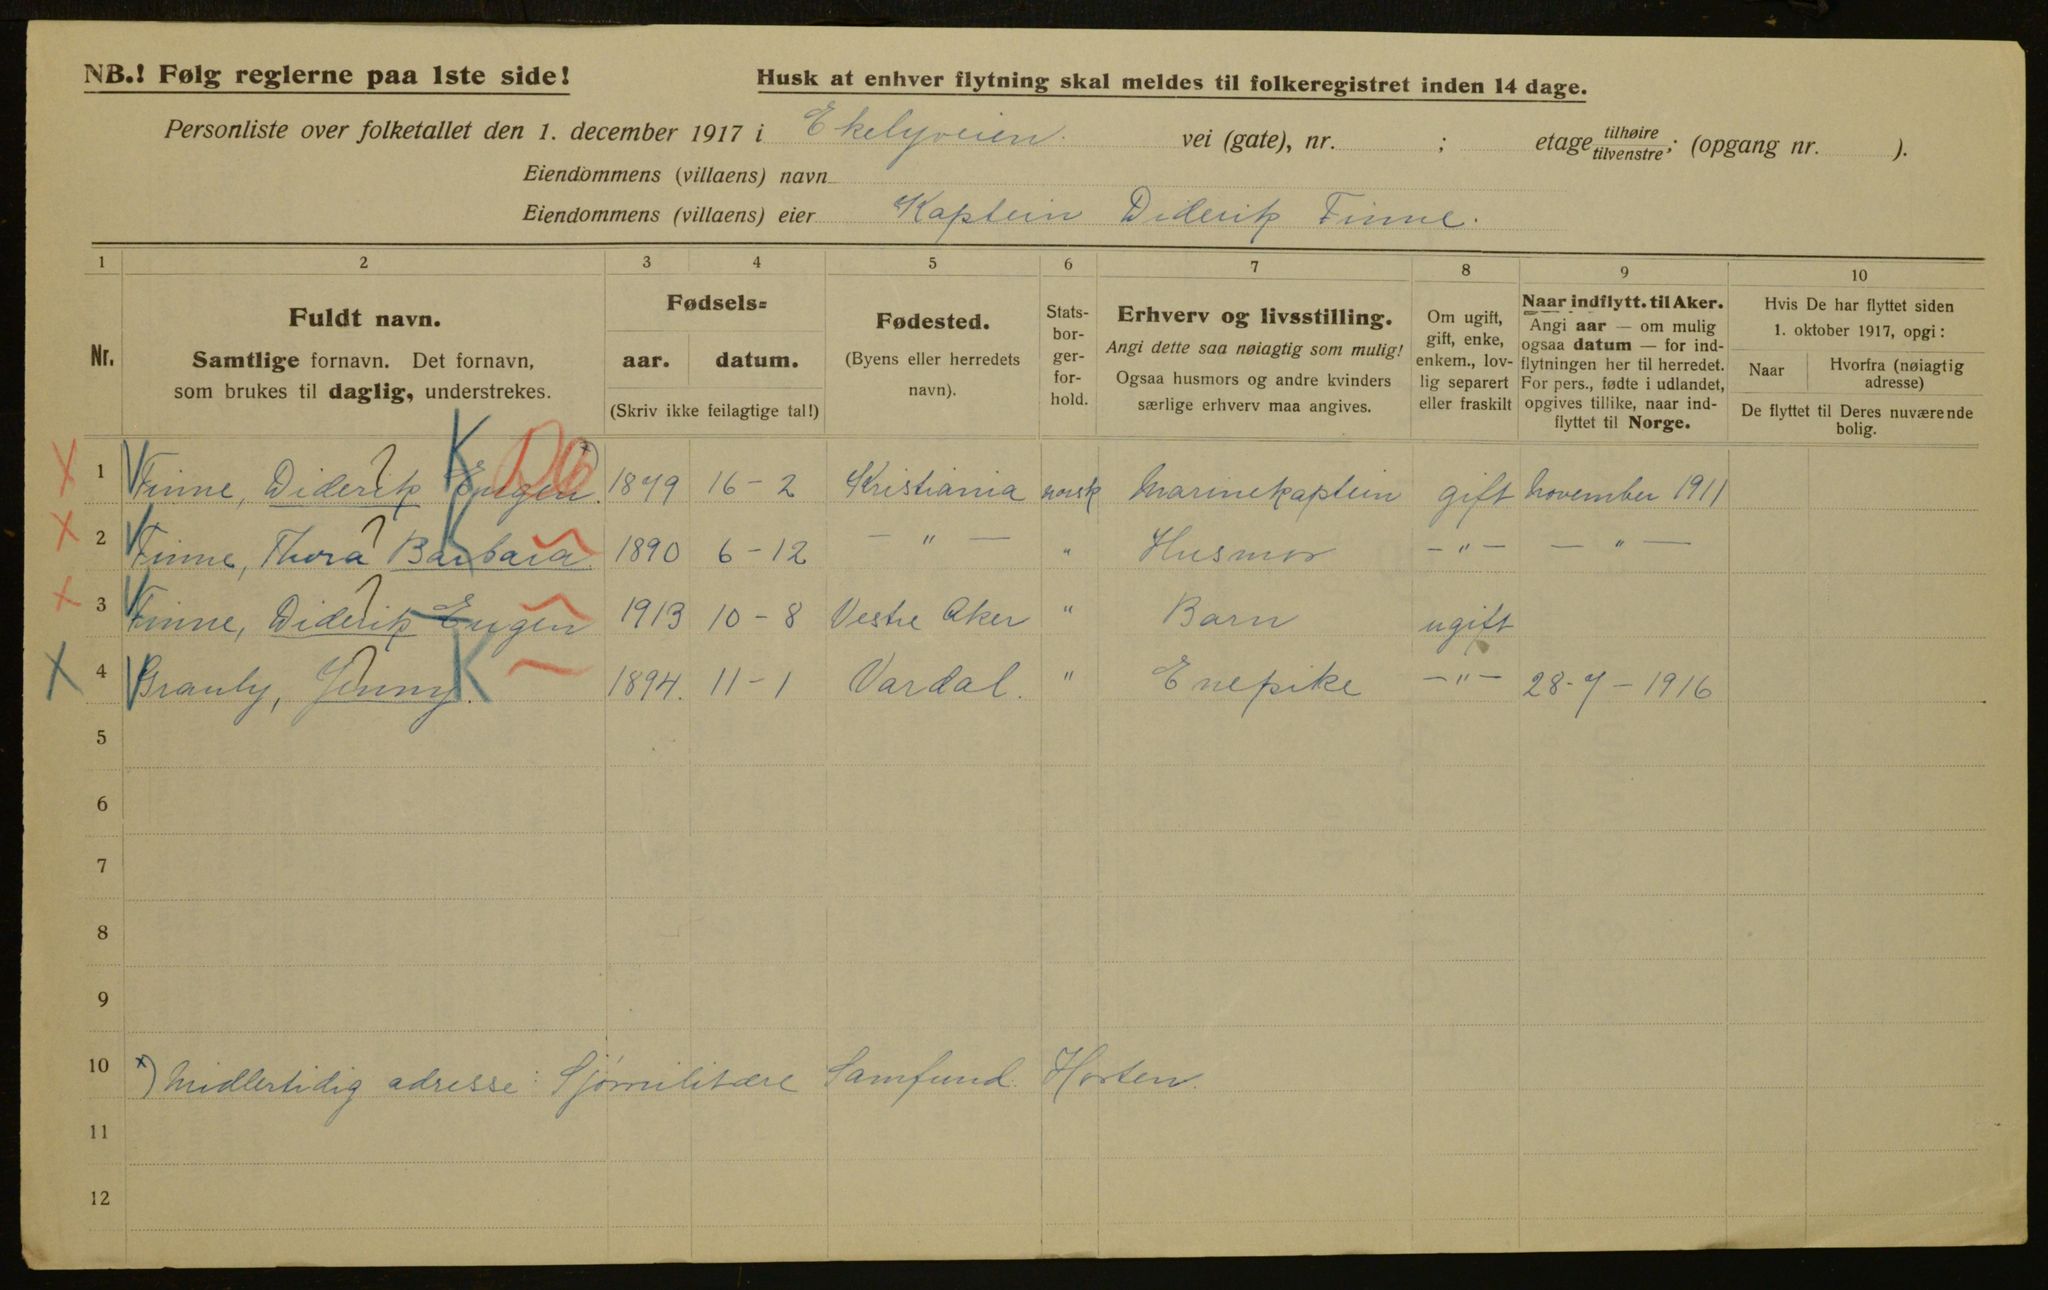 NB.! Følg reglerne paa 1ste side!
Husk at enhver flytning skal meldes til folkeregistret inden 14 dage.
Personliste over folketallet den 1. december 1917 i Ekelyveien. vei (gate), nr. ; etage tilhøire tilvenstre ; (opgang nr. ).
Eiendommens (villaens) navn
Eiendommens (villaens) eier Kaptein Diderik Finne.
1 2 3 4 5 6 7 8 9 10
Nr.
Fuldt navn.
Samtlige fornavn. Det fornavn,
som brukes til daglig, understrekes.
Fødsels=
aar. datum.
(Skriv ikke feilagtige tal!)
Fødested.
(Byens eller herredets
navn).
Stats-
bor-
ger-
for-
hold.
Erhverv og livsstilling.
Angi dette saa nøiagtig som mulig!
Ogsaa husmors og andre kvinders
særlige erhverv maa angives.
Om ugift,
gift, enke,
enkem., lov-
lig separert
eller fraskilt
Naar indflytt. til Aker.
Angi aar — om mulig
ogsaa datum — for ind-
flytningen her til herredet.
For pers., fødte i utlandet,
opgives tillike, naar ind-
flyttet til Norge.
Hvis De har flyttet siden
1. oktober 1917, opgi:
Naar
Hvorfra (nøiagtig
adresse)
De flyttet til Deres nuværende
bolig.
X 1 Finne, Diderik Eugen. x) ? K 1879 16 - 2 Kristiania norsk Marinekaptein gift November 1911
X 2 Finne, Thora Barbara. ? K 1890 6 - 12 — " — " Husmor — " — — " —
X 3 Finne, Diderik Eugen ? 1913 10 - 8 Vestre Aker " Barn ugift
X 4 Granly, Jenny. ? K 1894. 11 - 1 Vardal. " Enepike — " — 28 - 7 - 1916
5
6
7
8
9
10 x) Midlertidig adresse: Sjømilitære Samfund. Horten.
11
12